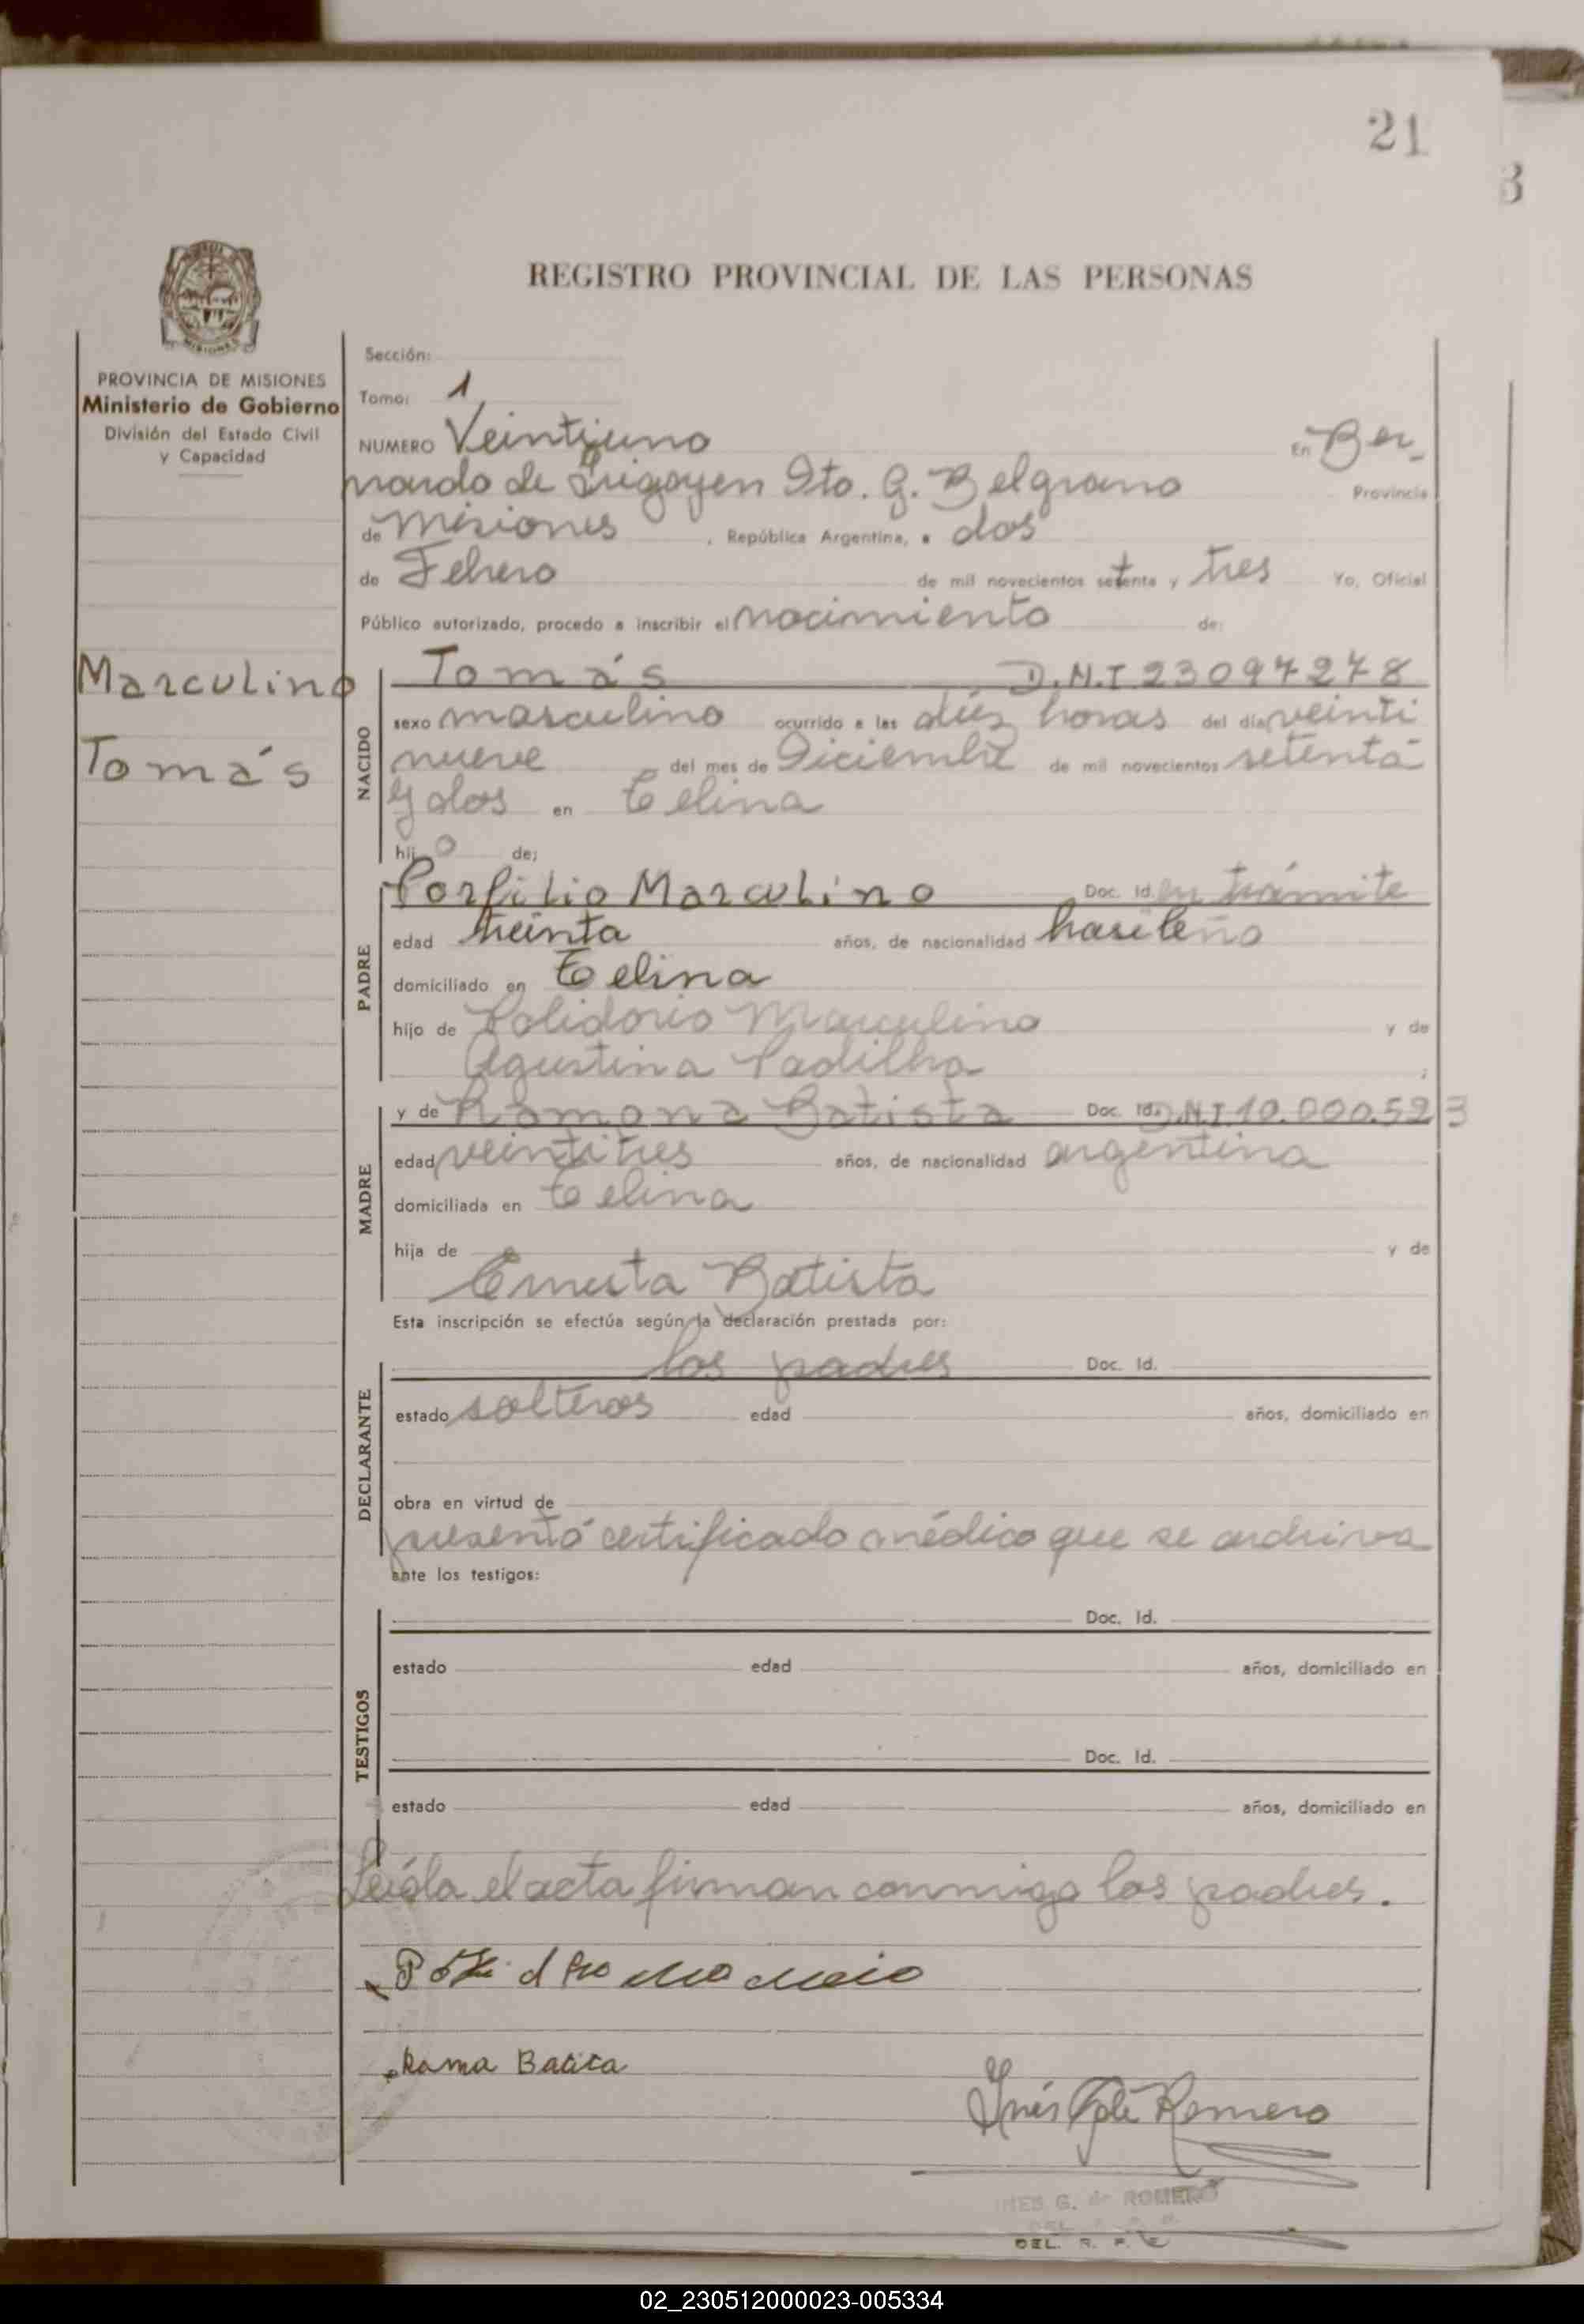 21
3
REGISTRO PROVINCIAL DE LAS PERSONAS
MISIONES
PROVINCIA DE MISIONES
Ministerio de Gobierno
División del Estado Civil
y Capacidad
Sección:
Tomo: 1
NUMERO Veintiuno En Ber_
nardo de Irigoyen Dto. G. Belgrano Provincia
de Misiones , República Argentina, a dos
de Febrero de mil novecientos setenta y tres Yo, Oficial
Público autorizado, procedo a inscribir el nacimiento de:
Marculino
Tomás
NACIDO
Tomás D.N.I 23097278
sexo masculino ocurrido a las diez horas del día veinti
nueve del mes de Diciembre de mil novecientos setenta
y dos en Celina
hijo de;
PADRE
Porfilio Marculino Doc. Id. en trámite
edad treinta años, de nacionalidad brasileño
domiciliado en Celina
hijo de Polidorio Marculino y de
Agustina Padilha ;
MADRE
y de Ramona Batista Doc. Id. D.N.I 10.000.523
edad veintitres años, de nacionalidad argentina
domiciliada en Celina
hija de y de
Ernesta Batista
Esta inscripción se efectúa según la declaración prestada por:
DECLARANTE
los padres Doc. Id.
estado solteros edad años, domiciliado en
obra en virtud de
presentó certificado médico que se archiva
ante los testigos:
TESTIGOS
Doc. Id.
estado edad años, domiciliado en
Doc. Id.
estado edad años, domiciliado en
Leída el acta firman conmigo los padres.
Rama Batita
Inés G. de Romero
INES G. de ROMERO
DEL. R. P.
02_230512000023-005334